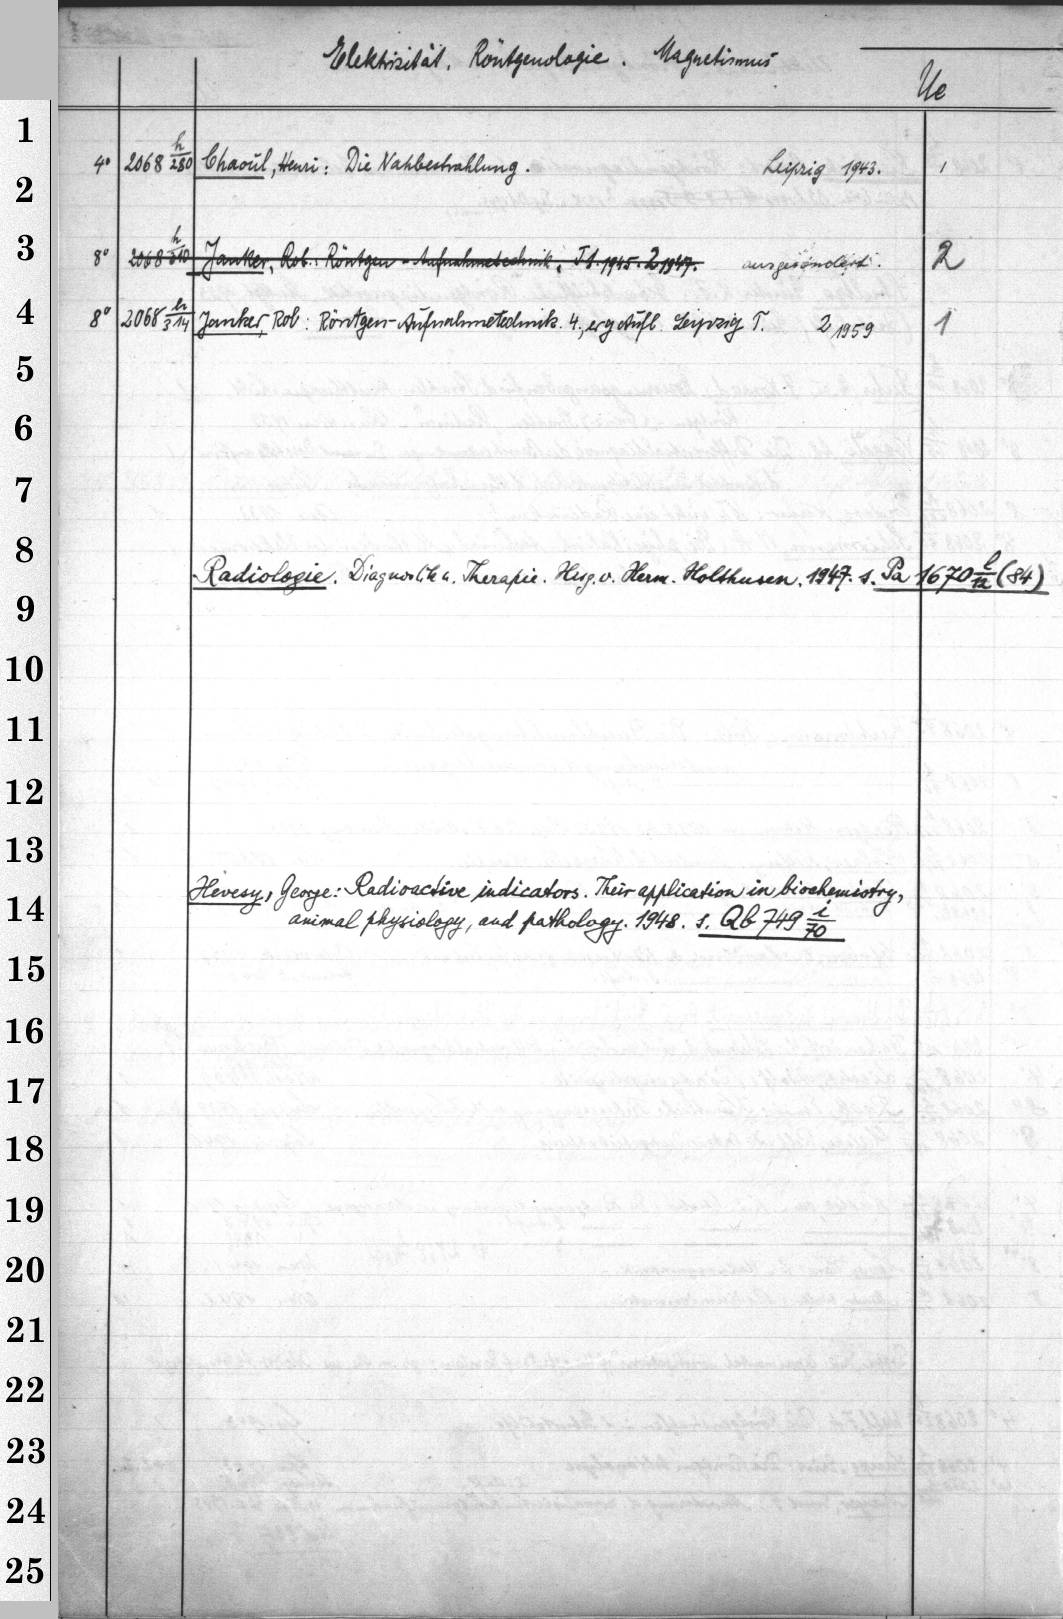 Elektrizität. Röntgenologie. Magnetismus
Ue
1
4° 2068 h/280 Chaoul, Henri: Die Nahbestrahlung. Leipzig 1943. 1
2
3 8° 2068 h/310 Janker, Rob.: Röntgen-Aufnahmetechnik. T1. 1945. 2 1947. ausgesondert. 2
4 8° 2068 h/314 Janker, Rob: Röntgen-Aufnahmetechnik. 4., erg Aufl. Leipzig T. 2 1959 1
5
6
7
8
Radiologie. Diagnostik u. Therapie. Hrsg. v. Herm. Holthusen. 1947. s. Pa 1670 l/12 (84)
9
10
11
12
13
Hevesy, George: Radioactive indicators. Their application in biochemistry,
14 animal physiology, and pathology. 1948. s. Qb 749 i/70
15
16
17
18
19
20
21
22
23
24
25